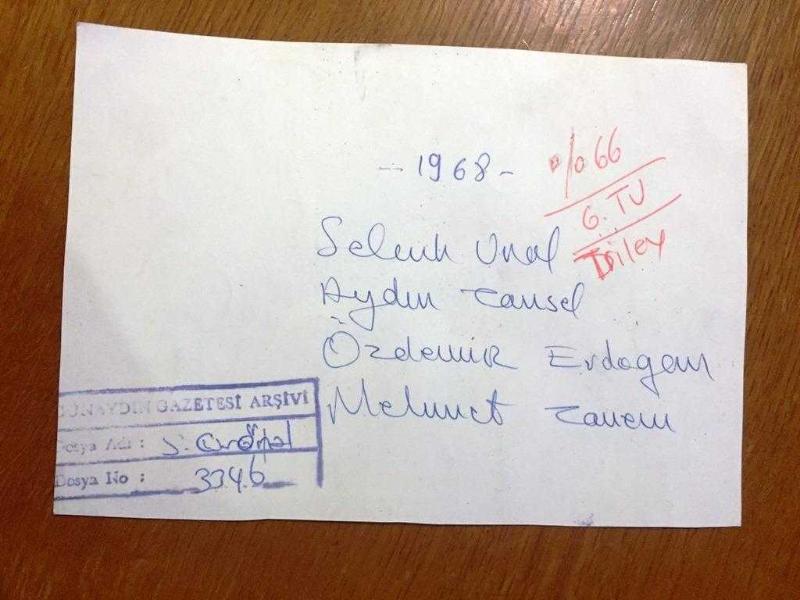 - 1968 -
%66
G. TU
Selçuk Ünal
Aydın Tansel
Özdemir Erdoğan
Mehmet
GÜNAYDIN GAZETESİ ARŞİVİ
Dosya Adı : S.
Dosya No : 3346